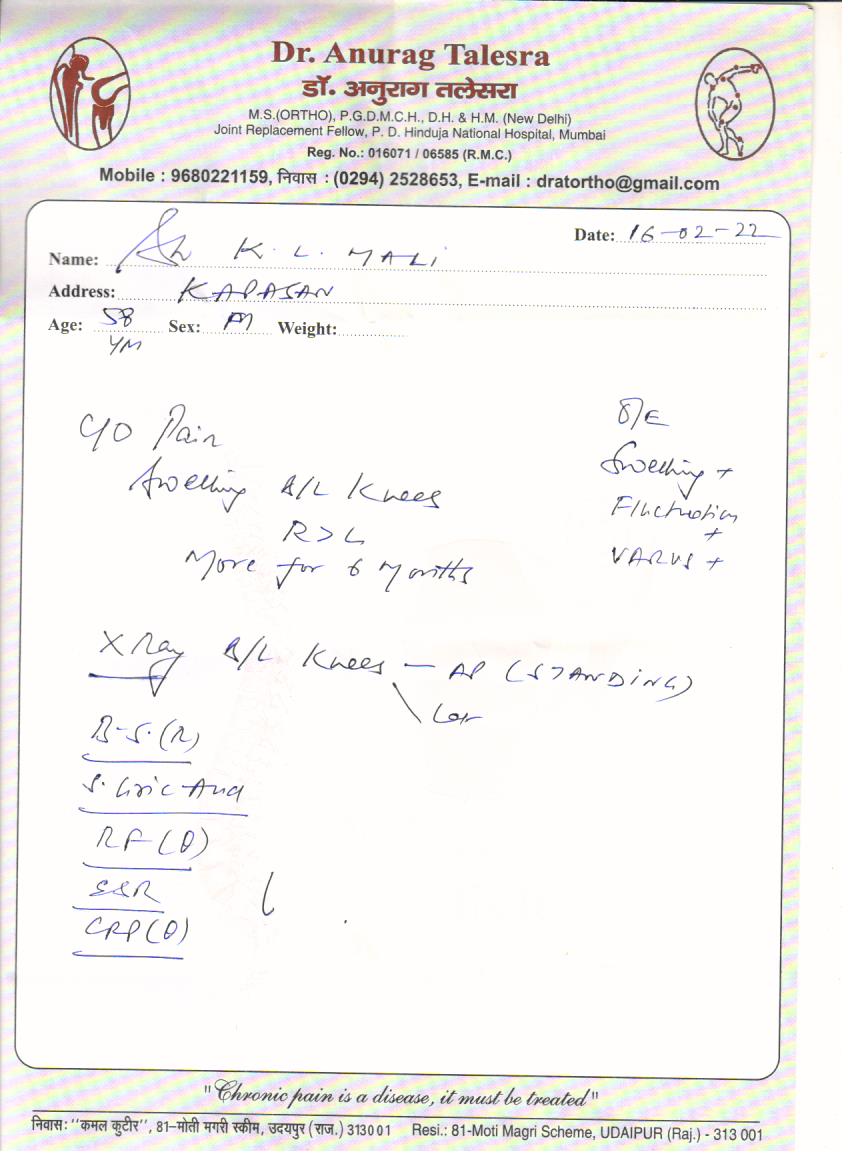 Dr. Anurag Talesra
डॉ. अनुराग तलेसरा
M.S.(ORTHO), P.G.D.M.C.H., D.H. & H.M. (New Delhi)
Joint Replacement Fellow, P. D. Hinduja National Hospital, Mumbai
Reg. No.: 016071 / 06585 (R.M.C.)
Mobile : 9680221159, निवास : (0294) 2528653, E-mail : dratortho@gmail.com
Date: 16-02-22
Name: Sh K. L. MALi
Address: KAPASAN
Age: 58 Sex: M Weight:
C/O Pain
Swelling B/L Knees
R>L
More for 6 Months
O/E
Swelling +
Fluctuation
+
VARUS +
X Ray B/L Knees — AP (STANDING)
Lat
B-S.(R)
S. Uric Acid
RF (Q)
ESR
CRP (Q)
"Chronic pain is a disease, it must be treated"
निवास: ''कमल कुटीर'', 81-मोती मगरी स्कीम, उदयपुर (राज.) 313001 Resi.: 81-Moti Magri Scheme, UDAIPUR (Raj.) - 313 001